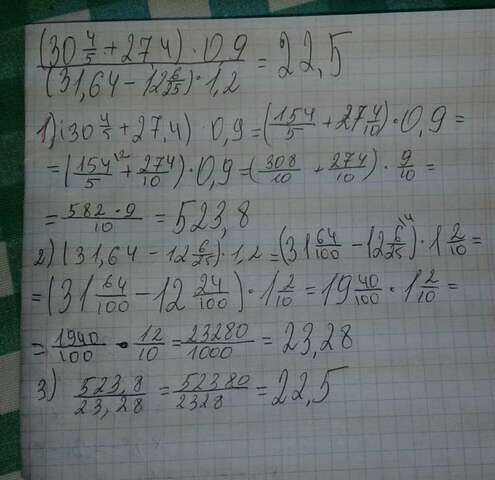 (30 4/5 + 27,4) · 0,9 / (31,64 − 12 6/25) · 1,2 = 22,5
1) (30 4/5 + 27,4) · 0,9 = (154/5 + 27 4/10) · 0,9 =
= (154/5 \2 + 274/10) · 0,9 = (308/10 + 274/10) · 9/10 =
= 582 · 9/10 = 523,8
2) (31,64 − 12 6/25) · 1,2 = (31 64/100 − 12 6/25 \4) · 1 2/10 =
= (31 64/100 − 12 24/100) · 1 2/10 = 19 40/100 · 1 2/10 =
= 1940/100 · 12/10 = 23280/1000 = 23,28
3) 523,8/23,28 = 52380/2328 = 22,5